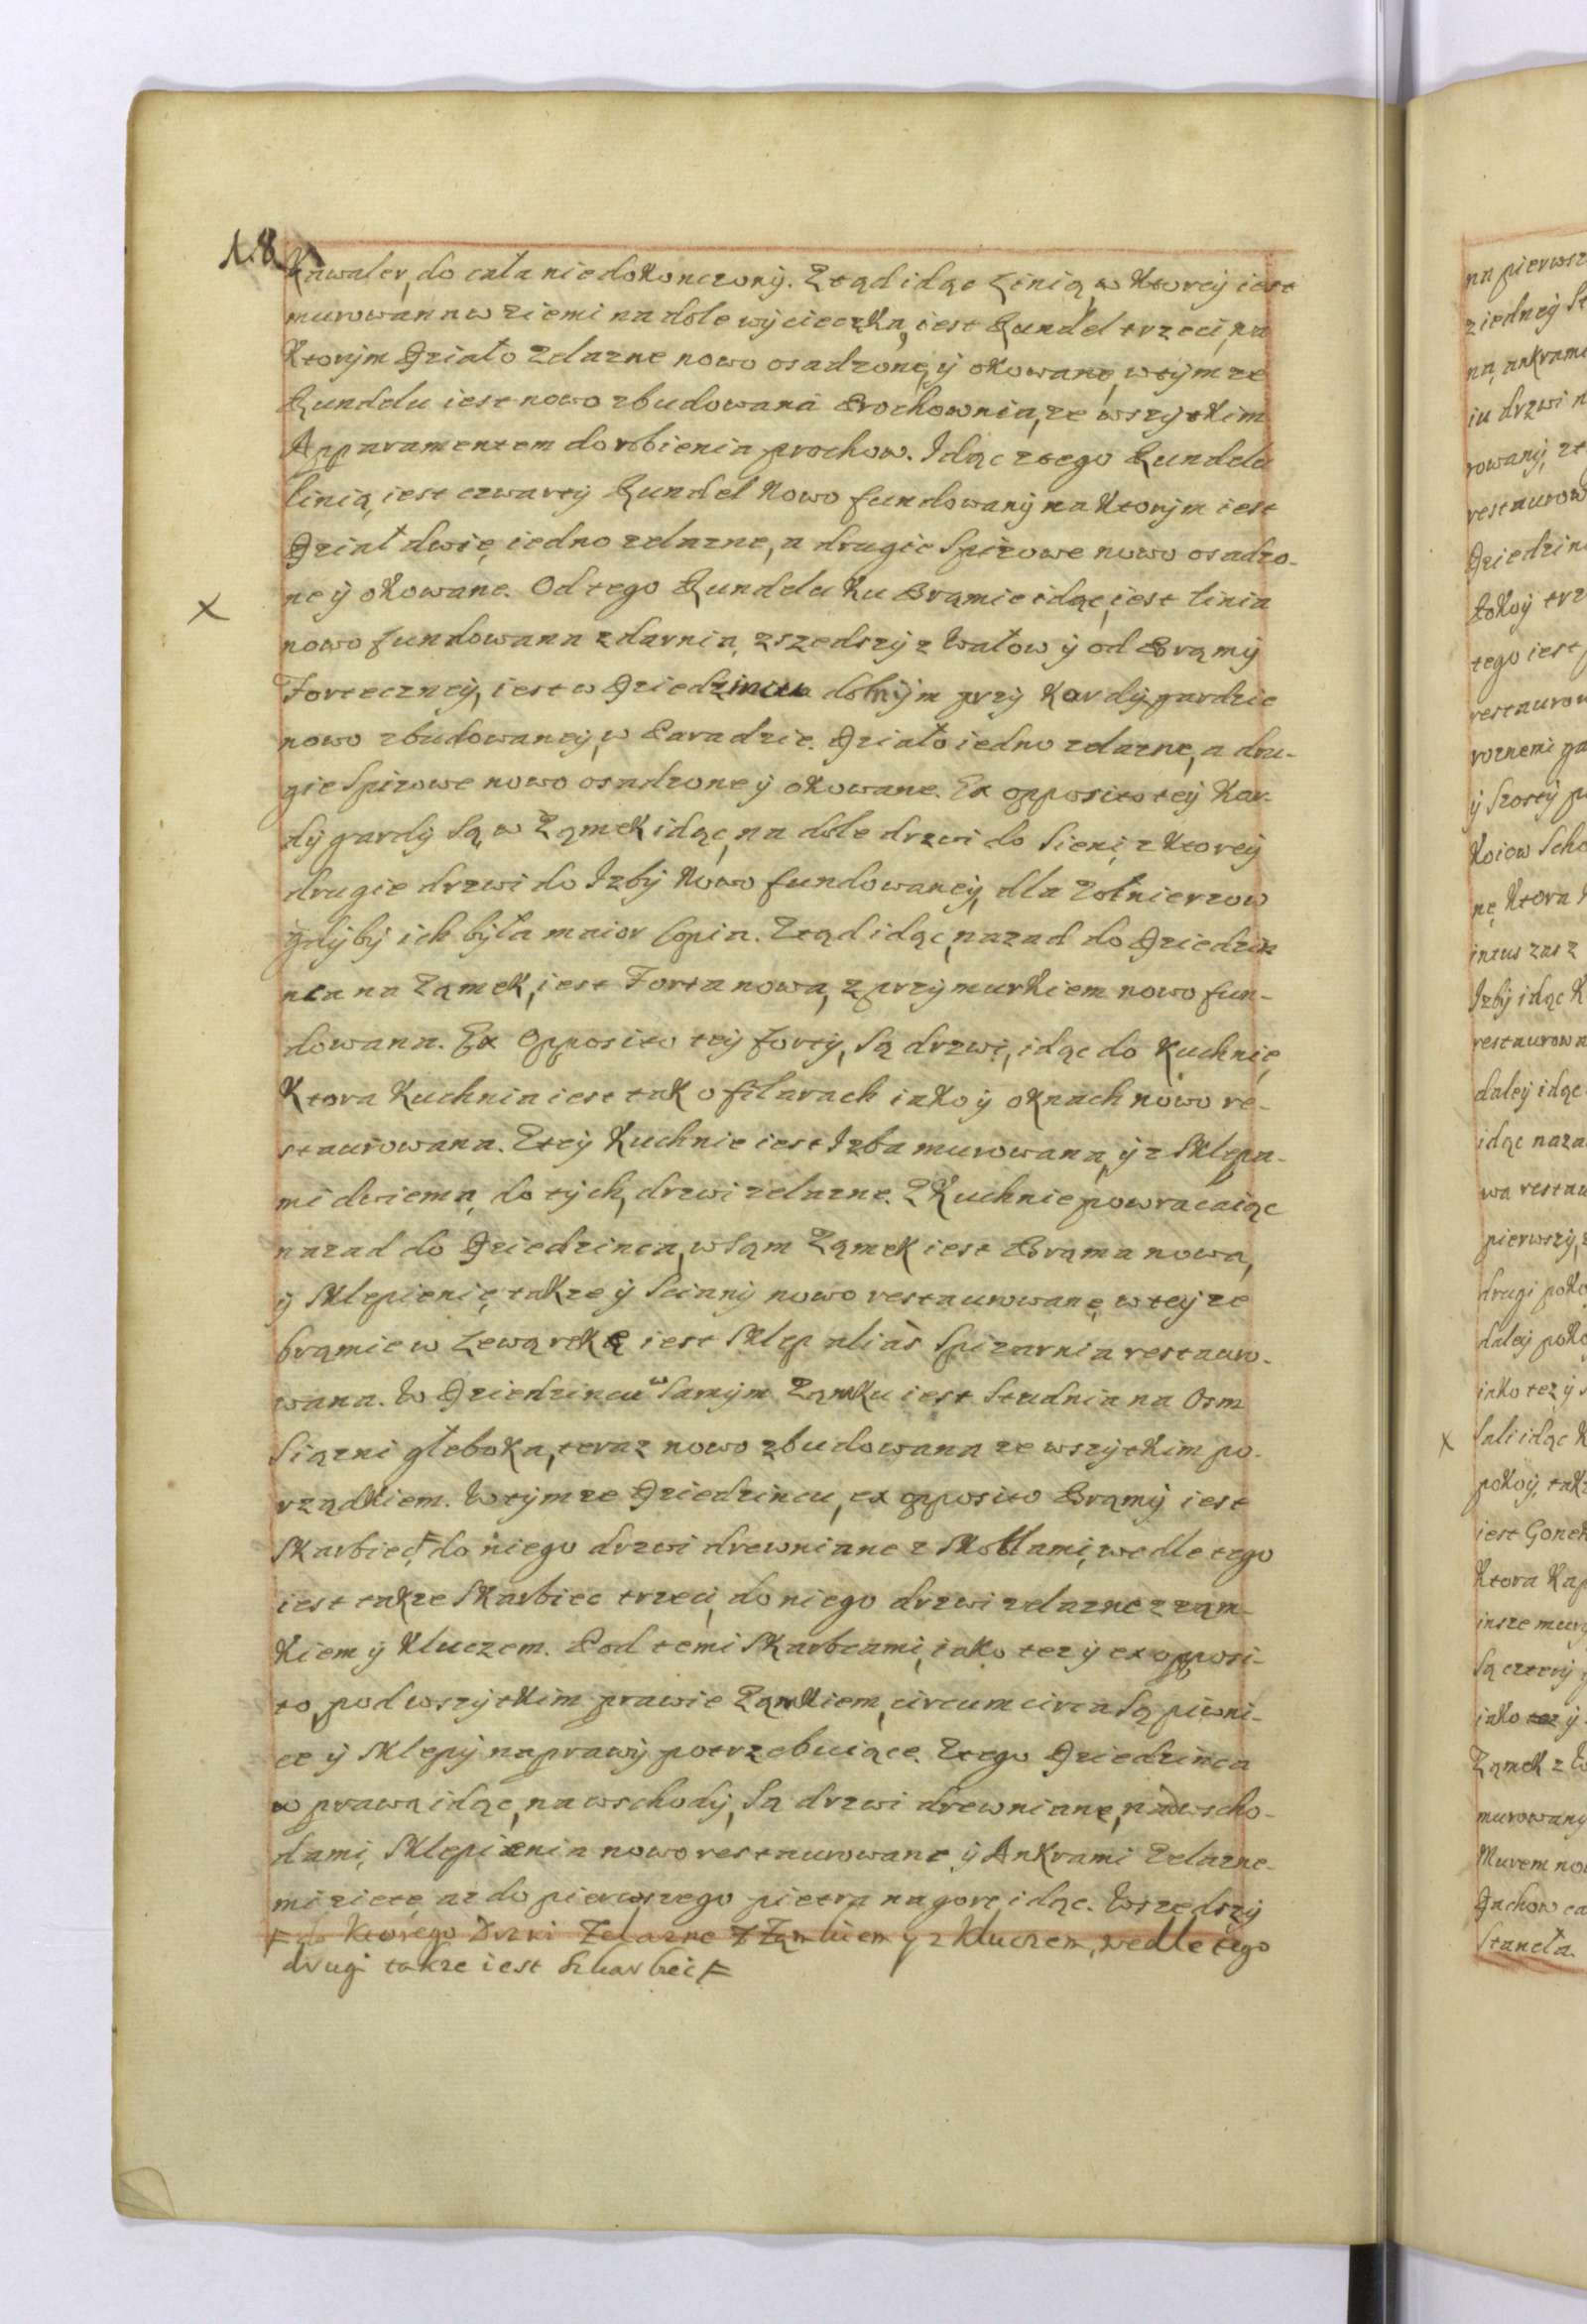 18
Kawaler, do cała niedokonczony. Ztąd idąc Linią, w Ktorey iest
murowana w ziemi na dole wycieczka, iest Rundel trzeci, na
Ktorym Działo Zelazne nowo osadzone, y okowane, w tymze
Rundelu iest nowo zbudowana Prochownia, ze wszytkim
Apparamentem do robienia prochow. Idąc z tego Rundela
linią, iest czwarty Rundel Nowo fundowany na Ktorym iest
Dział dwie, iedno zelazne, a drugie Spizowe nowo osadzo-
ne y okowane. Od tego Rundelu ku Bramie idąc, iest linia
nowo fundowana z darnia, zszedszy z Wałow y od Bramy
Forteczney, iest w Dziedzincu dolnym przy Kordygardzie
nowo zbudowaney, w Paradzie. Działo iedno zelazne, a dru-
gie Spizowe nowo osadzone y okowane. Ex opposito tey Kor-
dygardy Są, w Zamek idąc, na dole drzwi do Sieni, z Ktorey
drugie drzwi do Izby Nowo fundowaney, dla Zołnierzow
gdyby ich była maior Copia. Ztąd idąc, nazad do Dziedzi
nca na Zamek, iest Forta nowa, z przymurkiem nowo fun-
dowana. Ex Opposito tey forty, Są drzwi, idąc do Kuchnie,
Ktora Kuchnia iest tak o filarach iako y oknach nowo re-
staurowana. Z tey Kuchnie iest Izba murowana, y z Sklepa-
mi dwiema, do tych, drzwi zelazne. Z Kuchnie powracaiąc
nazad do Dziedzinca, w Sam Zamek iest Brama nowa,
y Sklepienie, takze y Sciany nowo restaurowane, w teyze
bramie w Lewą rękę iest Sklep alias Spizarnia restauro-
wana. W Dziedzincu w Samym Zamku iest Studnia na Osm
Siązni głeboka, teraz nowo zbudowana ze wszytkim po-
rządkiem. W tymze Dziedzincu, ex opposito Bramy iest
Skarbiec, F do niego drzwi drewniane z Skoblami, wedle tego
iest takze Skarbiec trzeci, do niego drzwi zelazne z zam-
kiem y Kluczem. Pod temi Skarbcami, iako tez y ex opposi-
to, pod wszytkim prawie Zamkiem, circum circa Są piwni-
ce y Sklepy naprawy potrzebuiące. Z tego Dziedzinca
w prawa idąc, na wschody, Są drzwi drewniane, nad wscho-
dami, Sklepienia nowo restaurowane y Ankrami Zelazne-
mi ziete, az do pierwszego pietra na gore idąc. Wszedszy
F do Ktorego Drzwi Zelazne z Zamkiem y z Kluczem, wedle tego
drugi takze iest Skarbiec F
X